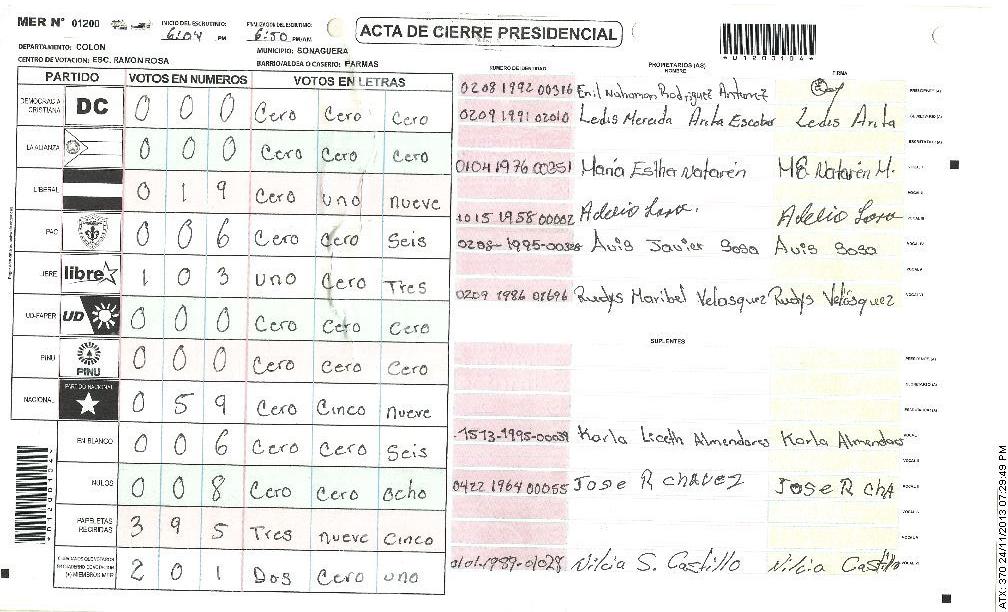 MER Nº 01200
INICIO DEL ESCRUTINIO: 6:04 PM
FINALIZACION DEL ESCRUTINIO: 6:50 PM/AM
ACTA DE CIERRE PRESIDENCIAL
*01200104*
DEPARTAMENTO: COLON
MUNICIPIO: SONAGUERA
CENTRO DE VOTACION: ESC. RAMON ROSA
BARRIO/ALDEA O CASERIO: PARMAS
PARTIDO VOTOS EN NUMEROS VOTOS EN LETRAS
DEMOCRACIA CRISTIANA DC 0 0 0 Cero Cero Cero
LA ALIANZA 0 0 0 Cero Cero Cero
LIBERAL 0 1 9 Cero uno nueve
PAC 0 0 6 Cero Cero Seis
LIBRE libre 1 0 3 uno Cero Tres
UD-FAPER UD 0 0 0 Cero Cero Cero
PINU PINU 0 0 0 Cero Cero Cero
NACIONAL PARTIDO NACIONAL 0 5 9 Cero Cinco nueve
EN BLANCO 0 0 6 Cero Cero Seis
NULOS 0 0 8 Cero Cero ocho
PAPELETAS RECIBIDAS 3 9 5 Tres nueve Cinco
(+) MIEMBROS MER 2 0 1 Dos Cero uno
NUMERO DE IDENTIDAD PROPIETARIOS (AS) NOMBRE FIRMA
0208 1992 00316 Enil Rodriguez PRESIDENTE (A)
0209 1991 02010 Ledis Mercida Arita Escobar Ledis Arita SECRETARIO (A)
0104 1976 00351 María Estha Natarén ME Natarén M.
1015 1958 00002 Adelio Lara. Adelio Lara
0208-1995-00328 Avis Javier Sosa Avis Sosa
0209 1986 01696 Rudys Maribel Velasquez Rudys Velásquez
SUPLENTES
PRESIDENTE (A)
SECRETARIO (A)
1513-1995-00039 Karla Liceth Almendares Karla Almendares
0422 1964 00055 JOSE R CHAVEZ JOSE R CHA
0101-1989-01028 Nilcia S. Castillo Nilcia Castillo
*01200104*
ATX: 370 24/11/2013 07:29:49 PM